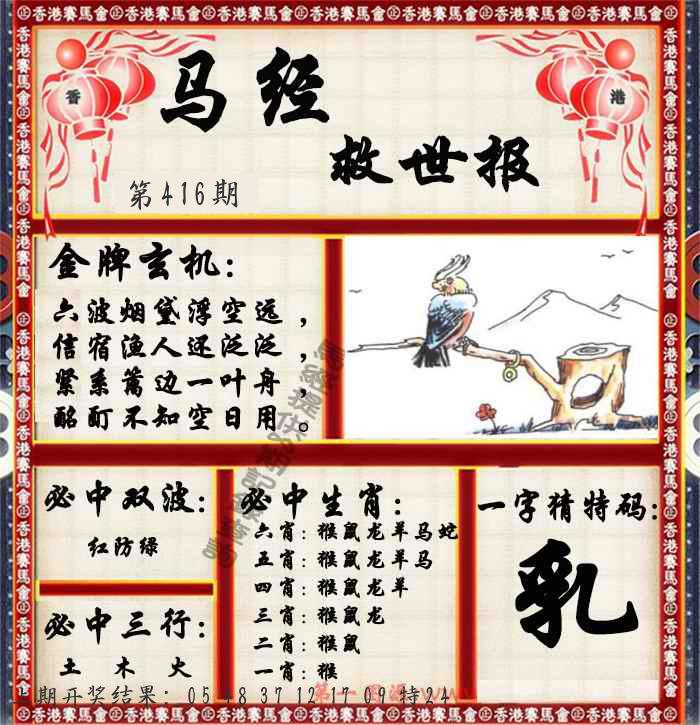 香港賽馬會㊣香港賽馬會㊣香港賽馬會㊣香港賽馬會㊣香港賽馬會㊣香港賽馬會
香 港
马经
救世报
第416期
金牌玄机:
六波烟黛浮空远，
信宿渔人还泛泛，
紧系篱边一叶舟，
酩酊不知空日用。
必中双波:
红防绿
必中三行:
土 木 火
必中生肖:
六肖: 猴鼠龙羊马蛇
五肖: 猴鼠龙羊马
四肖: 猴鼠龙羊
三肖: 猴鼠龙
二肖: 猴鼠
一肖: 猴
一字猜特码:
乳
期开奖结果: 05 48 37 12 17 09 特24